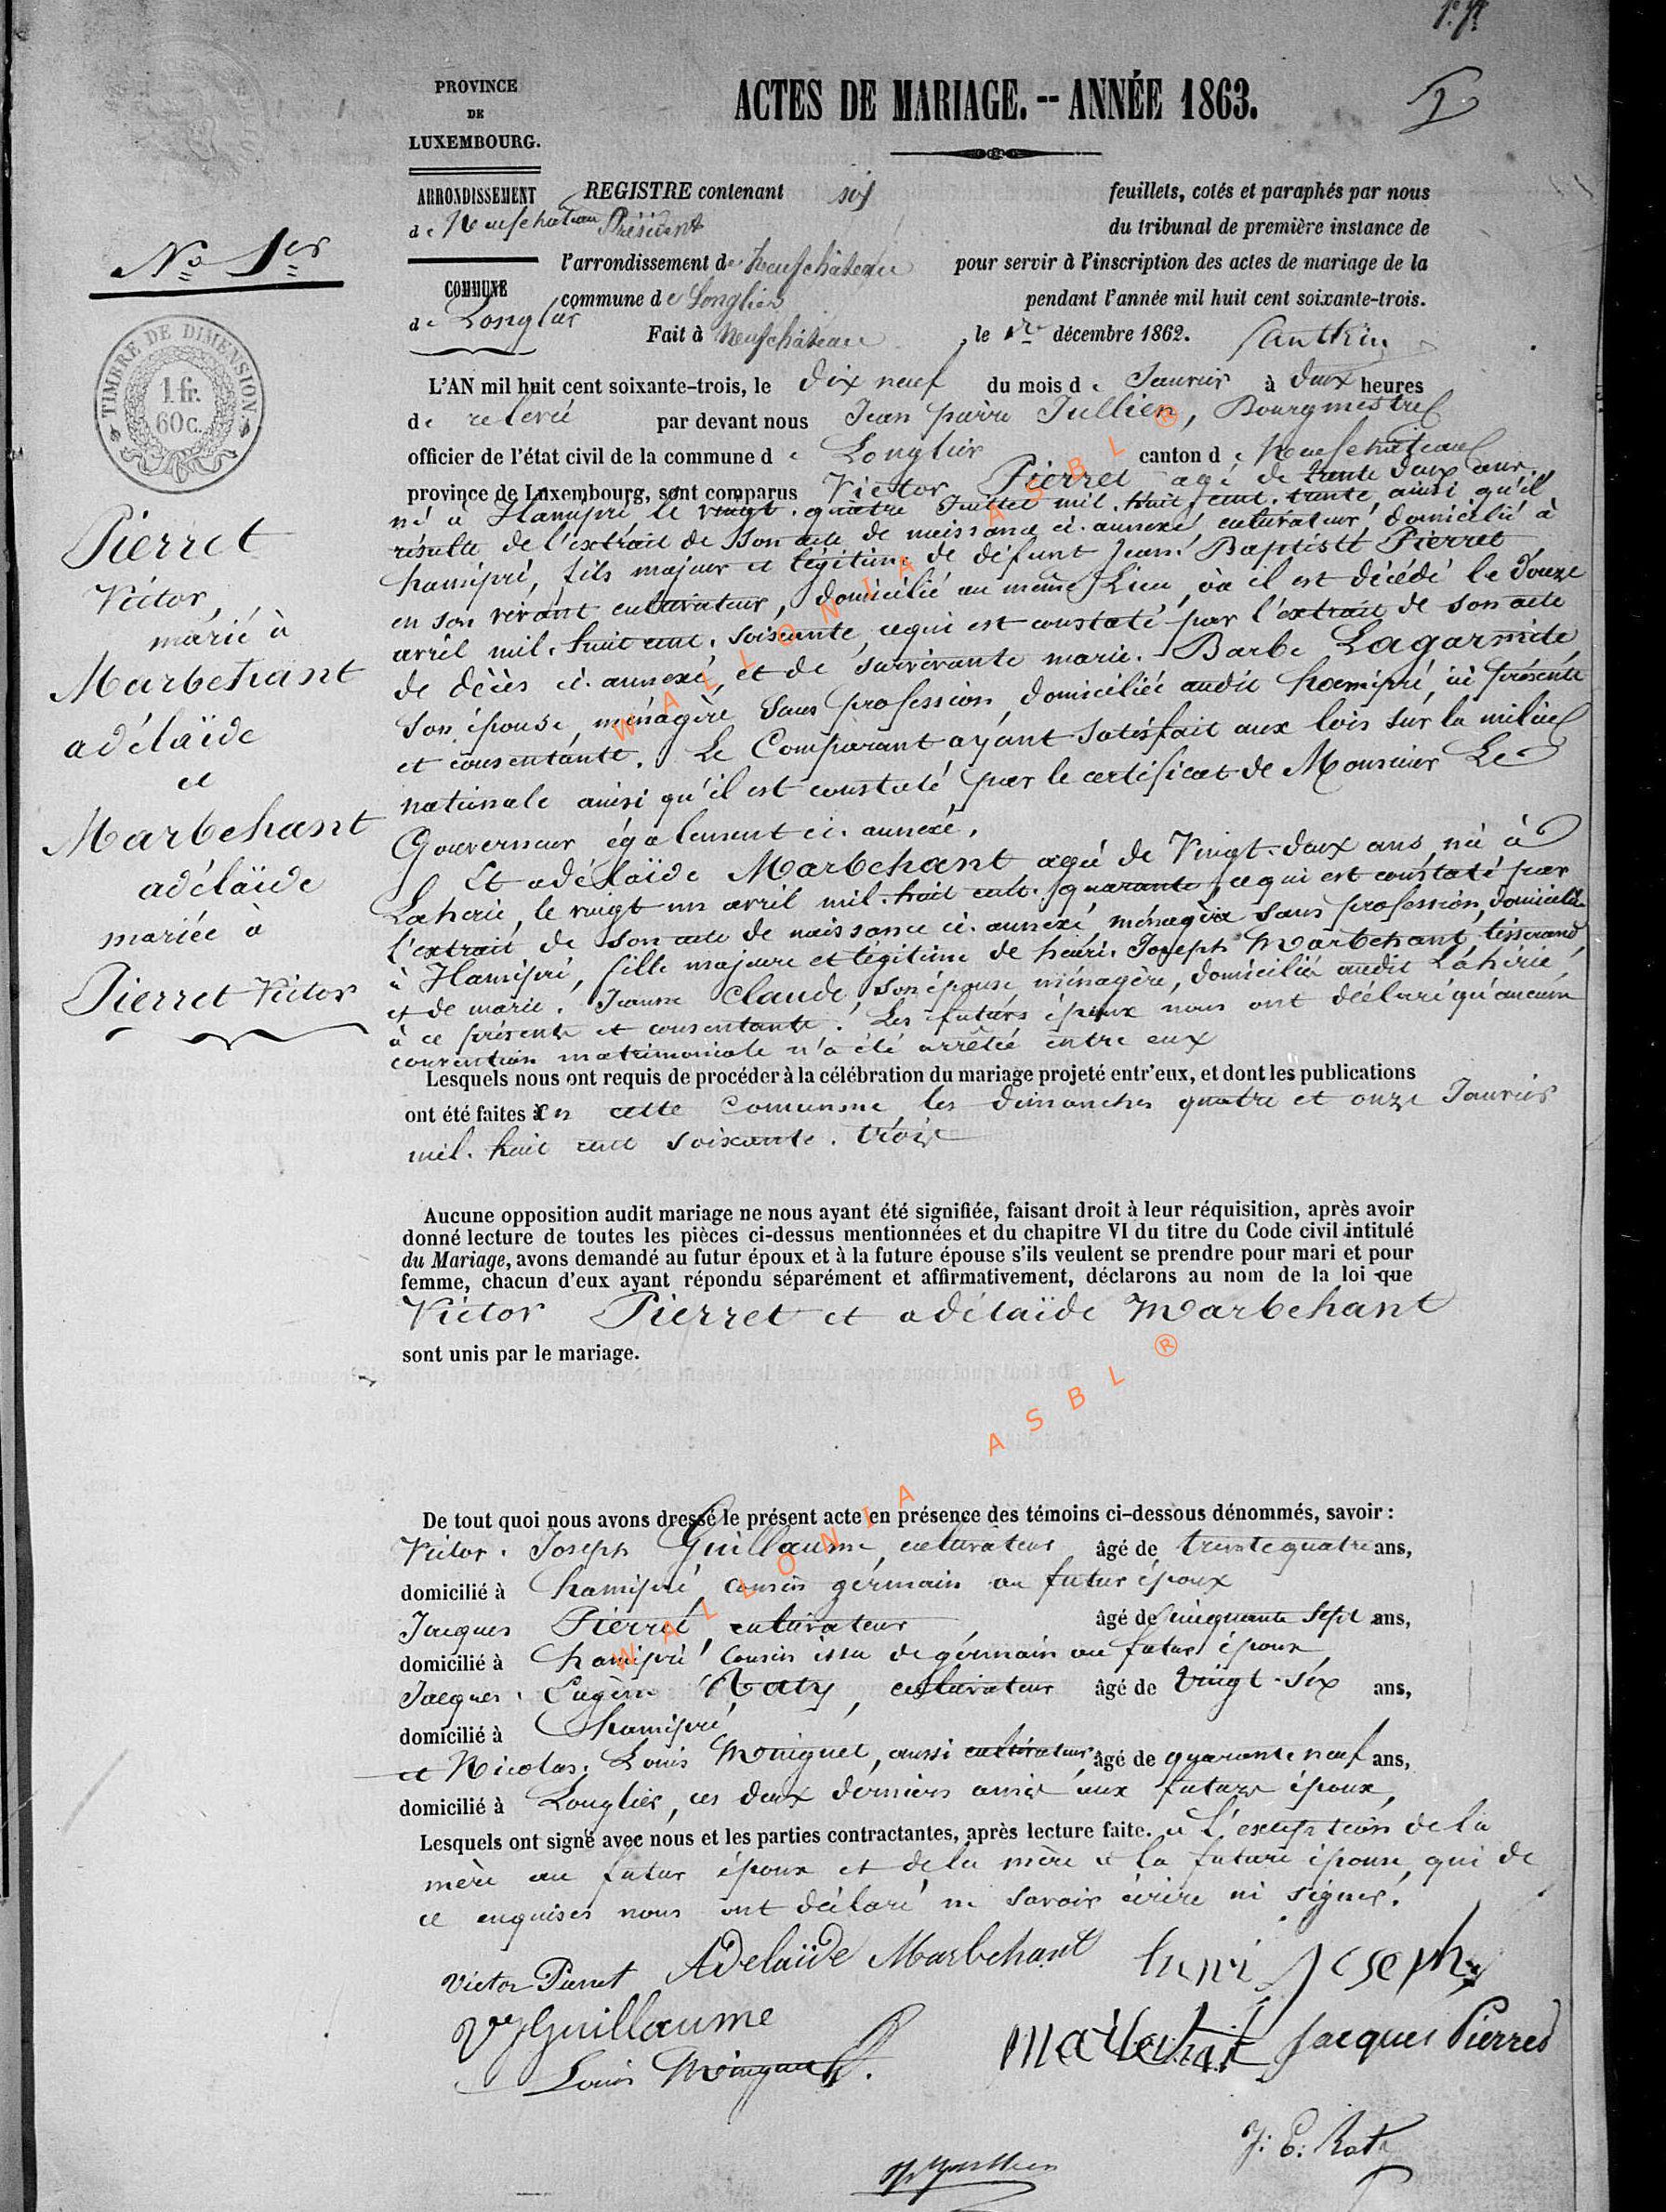 ACTES DE MARIAGE. -- ANNÉE 1863.
PROVINCE
DE
LUXEMBOURG.
ARRONDISSEMENT
de Neufchateau
COMMUNE
de Longlier
REGISTRE contenant six feuillets, cotés et paraphés par nous
Président du tribunal de première instance de
l'arrondissement de Neufchâteau pour servir à l'inscription des actes de mariage de la
commune de Longlier pendant l'année mil huit cent soixante-trois.
Fait à Neufchâteau, le décembre 1862.
No 1er
TIMBRE DE DIMENSION
1 fr.
60 c.
Pierret
Victor,
marié à
Marbehant
adélaïde
et
Marbehant
adélaïde
mariée à
Pierret Victor
L'AN mil huit cent soixante-trois, le dix neuf du mois de Janvier à deux heures
de relevée par devant nous Jean pierre Jullien, Bourgmestre
officier de l'état civil de la commune de Longlier canton de Neufchateau
province de Luxembourg, sont comparus Victor Pierret agé de trente deux ans,
né à Hamipré le vingt-quatre Juillet mil-huit-cent-trente, ainsi qu'il
résulte de l'extrait de son acte de naissance ci-annexé, cultivateur, domicilié à
hamipré, fils majeur et légitime de défunt Jean-Baptiste Pierret
en son vivant cultivateur, domicilié au même Lieu, où il est décédé le douze
avril mil-huit cent-soixante, ce qui est constaté par l'extrait de son acte
de décès ci-annexé, et de survivante marie-Barbe Lagarmite,
son épouse, ménagère sans profession, domiciliée audit hamipré, ici présente
et consentante. Le Comparant ayant satisfait aux lois sur la milice
nationale ainsi qu'il est constaté par le certificat de Monsieur Le
Gouverneur également ci-annexé.
Et adélaïde Marbehant agée de Vingt-deux ans, née à
Laherie, le vingt un avril mil-huit cent-quarante, ce qui est constaté par
l'extrait de son acte de naissance ci-annexé, ménagère sans profession, domiciliée
à Hamipré, fille majeure et légitime de henri-Joseph Marbehant, tisserand,
et de marie-Jeanne Claude, son épouse, ménagère, domiciliés audit Lahérie,
à ce présents et consentants. Les futurs époux nous ont déclaré qu'aucune
convention matrimoniale n'a été arrêtée entre eux
Lesquels nous ont requis de procéder à la célébration du mariage projeté entr'eux, et dont les publications
ont été faites en cette Commune les dimanches quatre et onze Janvier
mil-huit cent soixante-trois
Aucune opposition audit mariage ne nous ayant été signifiée, faisant droit à leur réquisition, après avoir
donné lecture de toutes les pièces ci-dessus mentionnées et du chapitre VI du titre du Code civil intitulé
du Mariage, avons demandé au futur époux et à la future épouse s'ils veulent se prendre pour mari et pour
femme, chacun d'eux ayant répondu séparément et affirmativement, déclarons au nom de la loi que
Victor Pierret et adélaïde Marbehant
sont unis par le mariage.
De tout quoi nous avons dressé le présent acte en présence des témoins ci-dessous dénommés, savoir :
Victor-Joseph Guillaume, cultivateur âgé de trente quatre ans,
domicilié à hamipré, cousin germain au futur époux
Jacques Pierret cultivateur âgé de cinquante sept ans,
domicilié à hamipré cousin issu de germain au futur époux,
Jacques-Eugène Roty, cultivateur âgé de vingt-six ans,
domicilié à hamipré
et Nicolas-Louis Moinguet, aussi cultivateur, âgé de quarante neuf ans,
domicilié à Longlier, ces deux derniers amis aux futurs époux,
Lesquels ont signé avec nous et les parties contractantes, après lecture faite. à l'exception de la
mère au futur époux et de la mère à la future épouse, qui de
ce enquises nous ont déclaré ne savoir écrire ni signer.
Victor Pierret Adelaïde Marbehant henri Joseph
VJ Guillaume marbehant Jacques Pierret
Louis Moinguet
J. E. Roty
WALLONIA ASBL ®
WALLONIA ASBL ®